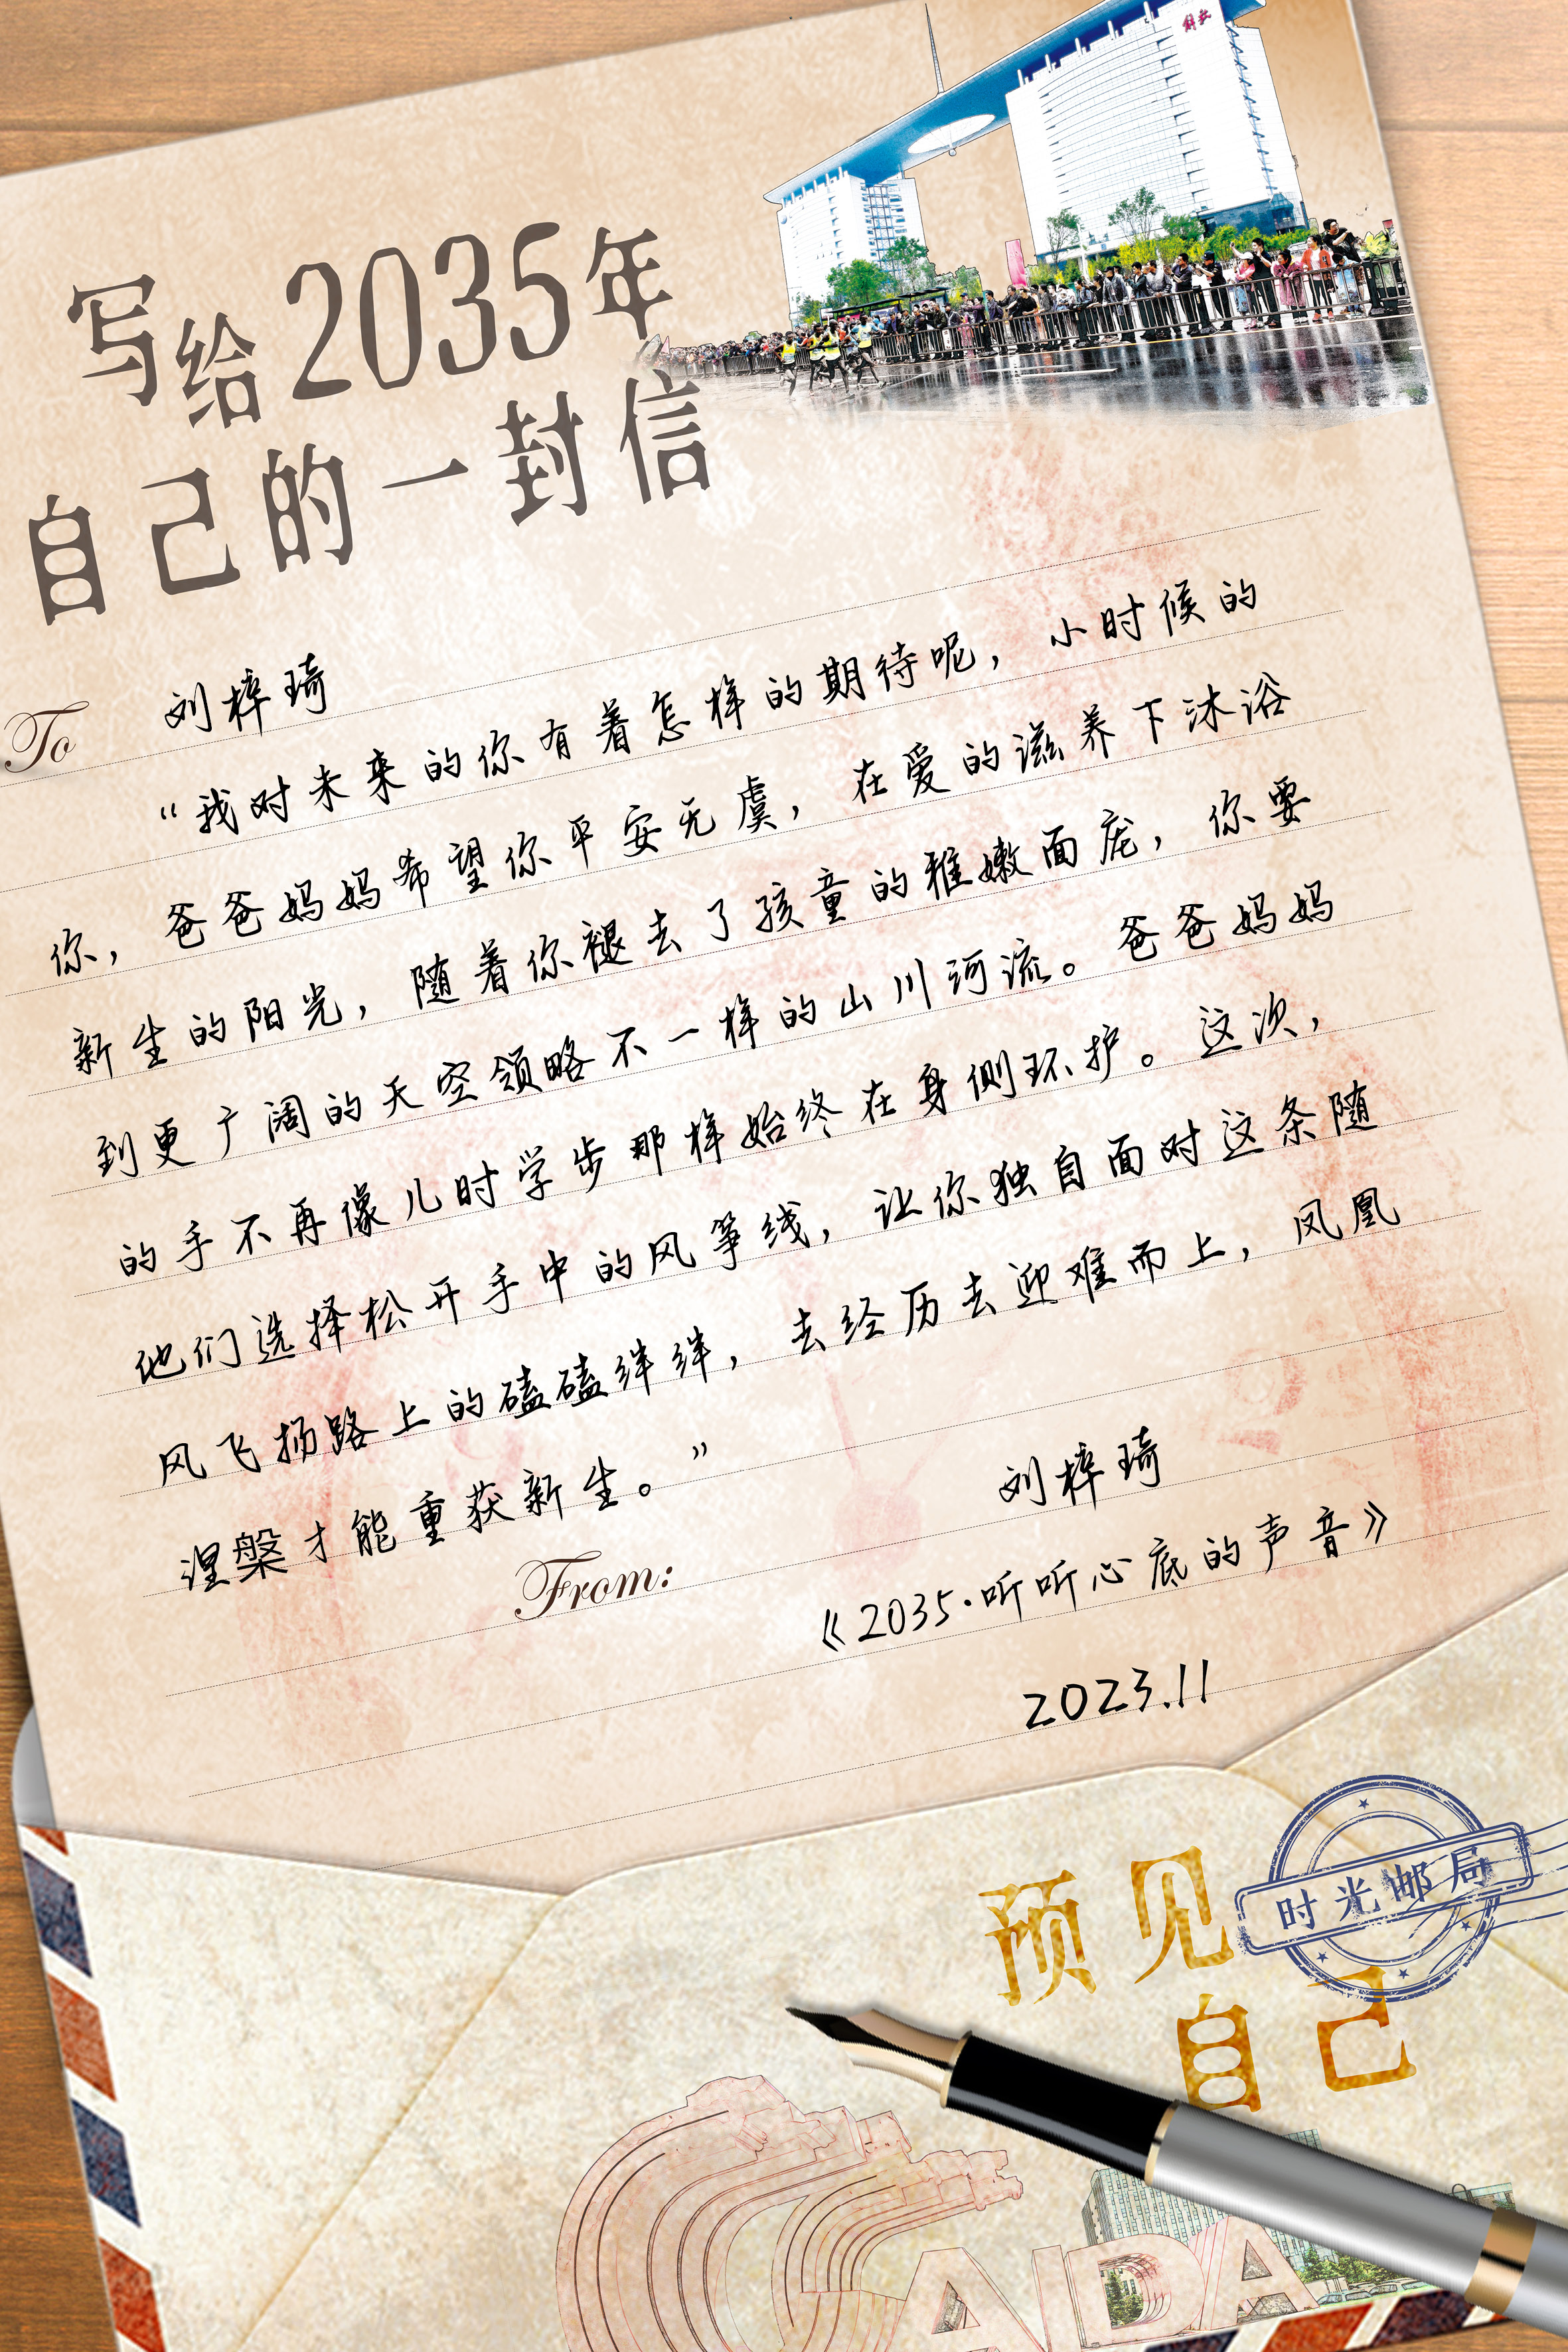 解放
写给2035年
自己的一封信
To 刘梓琦
“我对未来的你有着怎样的期待呢，小时候的
你，爸爸妈妈希望你平安无虞，在爱的滋养下沐浴
新生的阳光，随着你褪去了孩童的稚嫩面庞，你要
到更广阔的天空领略不一样的山川河流。爸爸妈妈
的手不再像儿时学步那样始终在身侧环护。这次，
他们选择松开手中的风筝线，让你独自面对这条随
风飞扬路上的磕磕绊绊，去经历去迎难而上，凤凰
涅槃才能重获新生。”
From: 刘梓琦
《2035·听听心底的声音》
2023.11
时光邮局
预见
自己
CADA